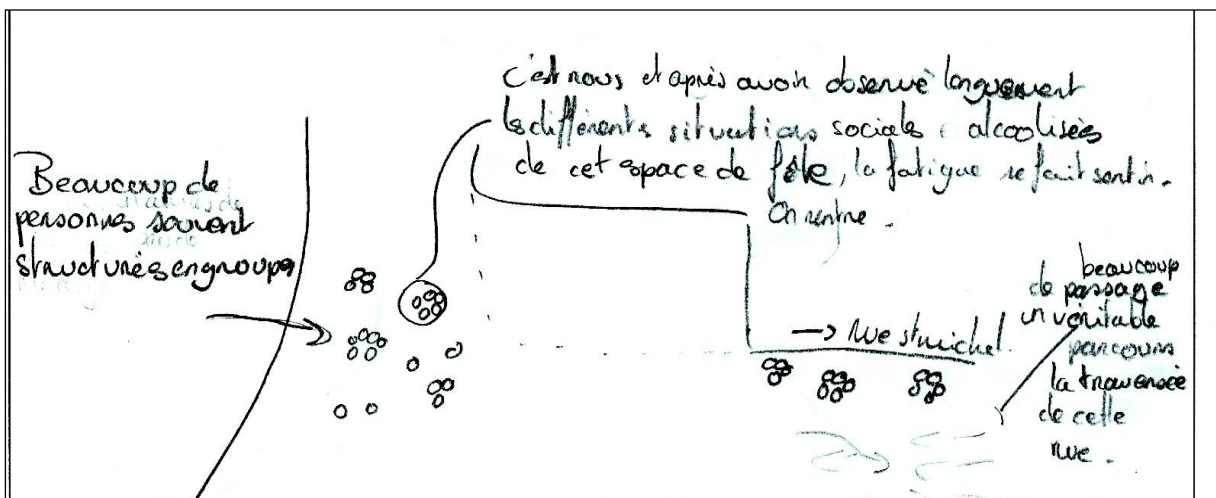 Beaucoup de
personnes souvent
structurés en groupe
c'est nous et après avoir observé longuement
les différents situations sociales alcoolisées
de cet espace de fête, la fatigue se fait sentir.
On rentre.
→ rue st michel.
beaucoup
de passage
un véritable
parcours
la traversée
de cette
rue.